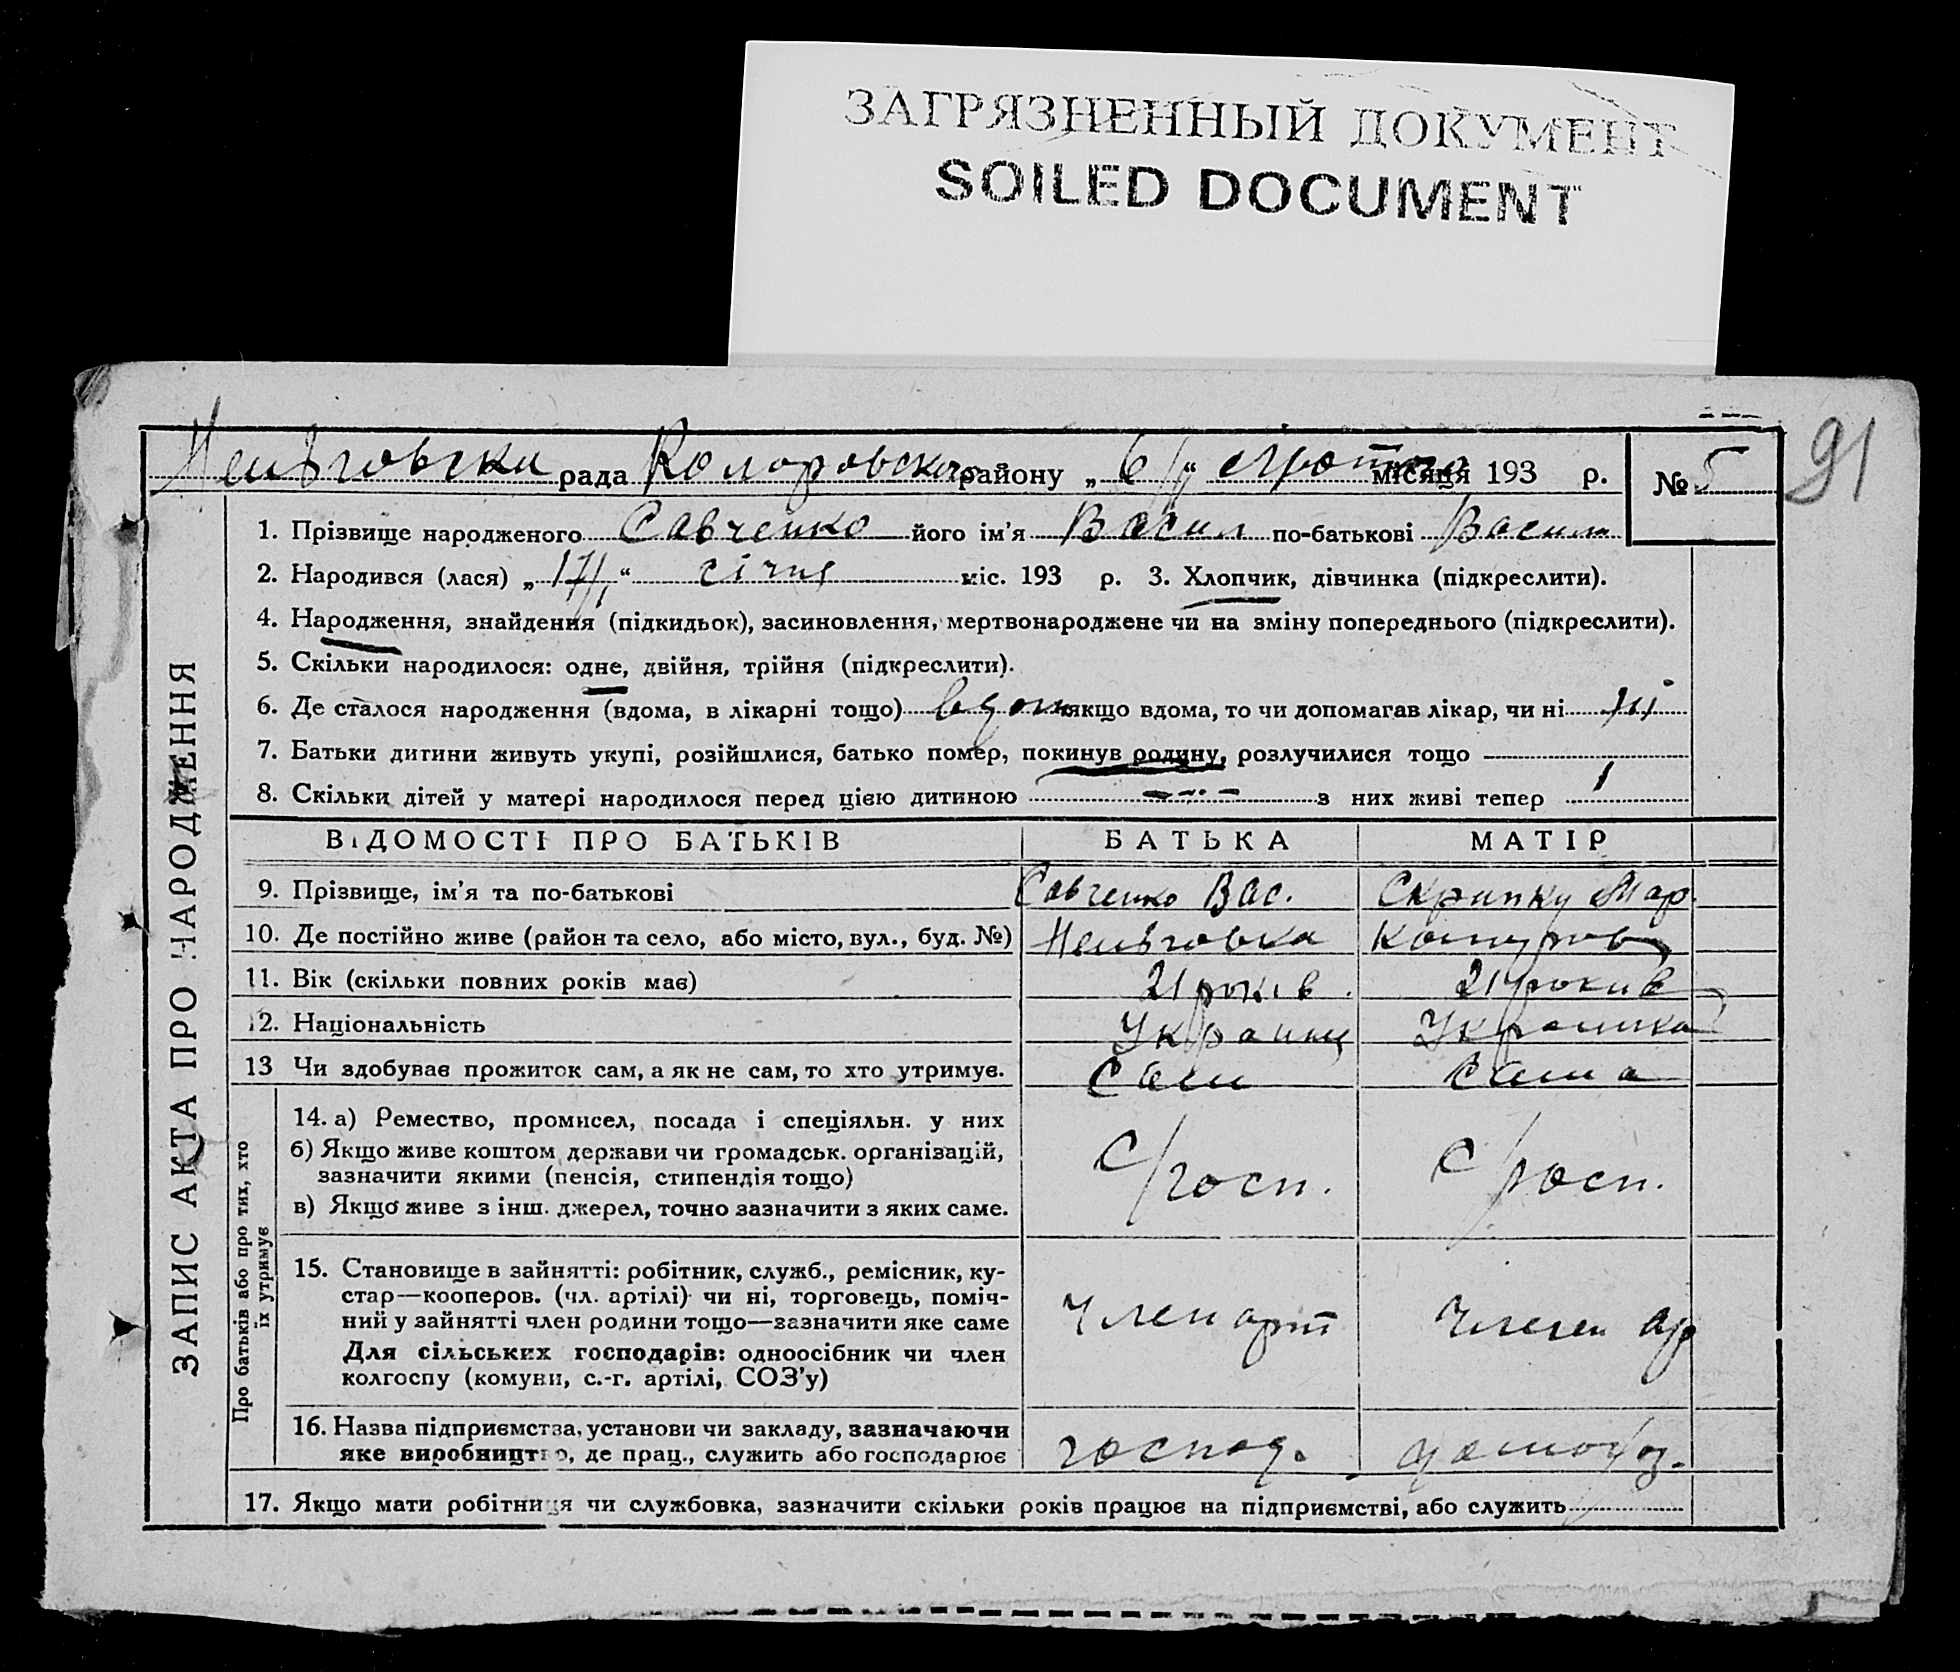 ЗАГРЯЗНЕННЫЙ ДОКУМЕНТ
SOILED DOCUMENT
91
рада району „ 6/II “ лютого місяця 193 р. № 5
ЗАПИС АКТА ПРО НАРОДЖЕННЯ
1. Прізвище народженого Савченко його ім'я Васил по-батькові Васил
2. Народився (лася) „ 17/I “ січня міс. 193 р. 3. Хлопчик, дівчинка (підкреслити).
4. Народження, знайдення (підкидьок), засиновлення, мертвонароджене чи на зміну попереднього (підкреслити).
5. Скільки народилося: одне, двійня, трійня (підкреслити).
6. Де сталося народження (вдома, в лікарні тощо) вдома якщо вдома, то чи допомагав лікар, чи ні ні
7. Батьки дитини живуть укупі, розійшлися, батько помер, покинув родину, розлучилися тощо
8. Скільки дітей у матері народилося перед цією дитиною — з них живі тепер 1
ВІДОМОСТІ ПРО БАТЬКІВ БАТЬКА МАТІР
9. Прізвище, ім'я та по-батькові Савченко Вас. Скрипку Мар.
10. Де постійно живе (район та село, або місто, вул., буд. №)
11. Вік (скільки повних років має) 21 років. 21 рокив
12. Національність Украинц Украинка
13 Чи здобуває прожиток сам, а як не сам, то хто утримує. Сам сама
Про батьків або про тих, хто їх утримує
14. а) Ремество, промисел, посада і спеціяльн. у них
б) Якщо живе коштом держави чи громадськ. організацій,
зазначити якими (пенсія, стипендія тощо)
в) Якщо живе з інш. джерел, точно зазначити з яких саме.
С/госп. С/госп.
15. Становище в зайнятті: робітник, служб., ремісник, ку-
стар—кооперов. (чл. артілі) чи ні, торговець, поміч-
ний у зайнятті член родини тощо—зазначити яке саме
Для сільських господарів: одноосібник чи член
колгоспу (комуни, с.-г. артілі, СОЗ'у)
Член арт Член ар
16. Назва підприємства, установи чи закладу, зазначаючи
яке виробництво, де прац., служить або господарює
господ.
17. Якщо мати робітниця чи службовка, зазначити скільки років працює на підприємстві, або служить